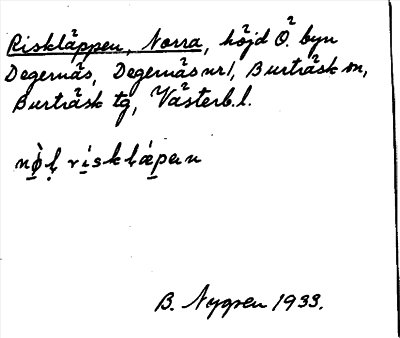 Riskläppen, Norra, höjd Ö. byn
Degernäs, Degernäs nr 1, Burträsk sn,
Burträsk tg, Västerb. l.
nø̀ḷ rísklǽpen
B. Nygren 1933.